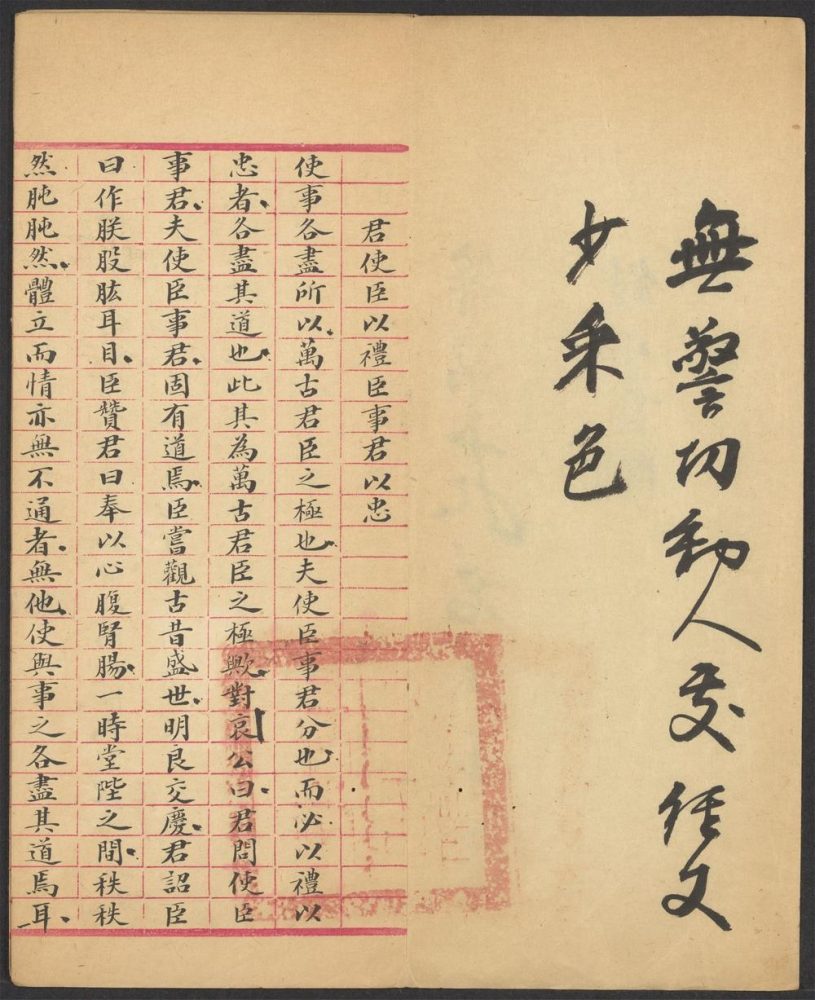 無警切動人處經文
少采色
君使臣以禮臣事君以忠
使事各盡所以萬古君臣之極也夫使臣事君分也而必以禮以
忠者各盡其道也此其為萬古君臣之極歟對哀公曰君問使臣
事君夫使臣事君固有道焉臣嘗觀古昔盛世明良交慶君詔臣
曰作朕股肱耳目臣贊君曰奉以心腹腎腸一時堂陛之間秩秩
然肫肫然體立而情亦無不通者無他使與事之各盡其道焉耳